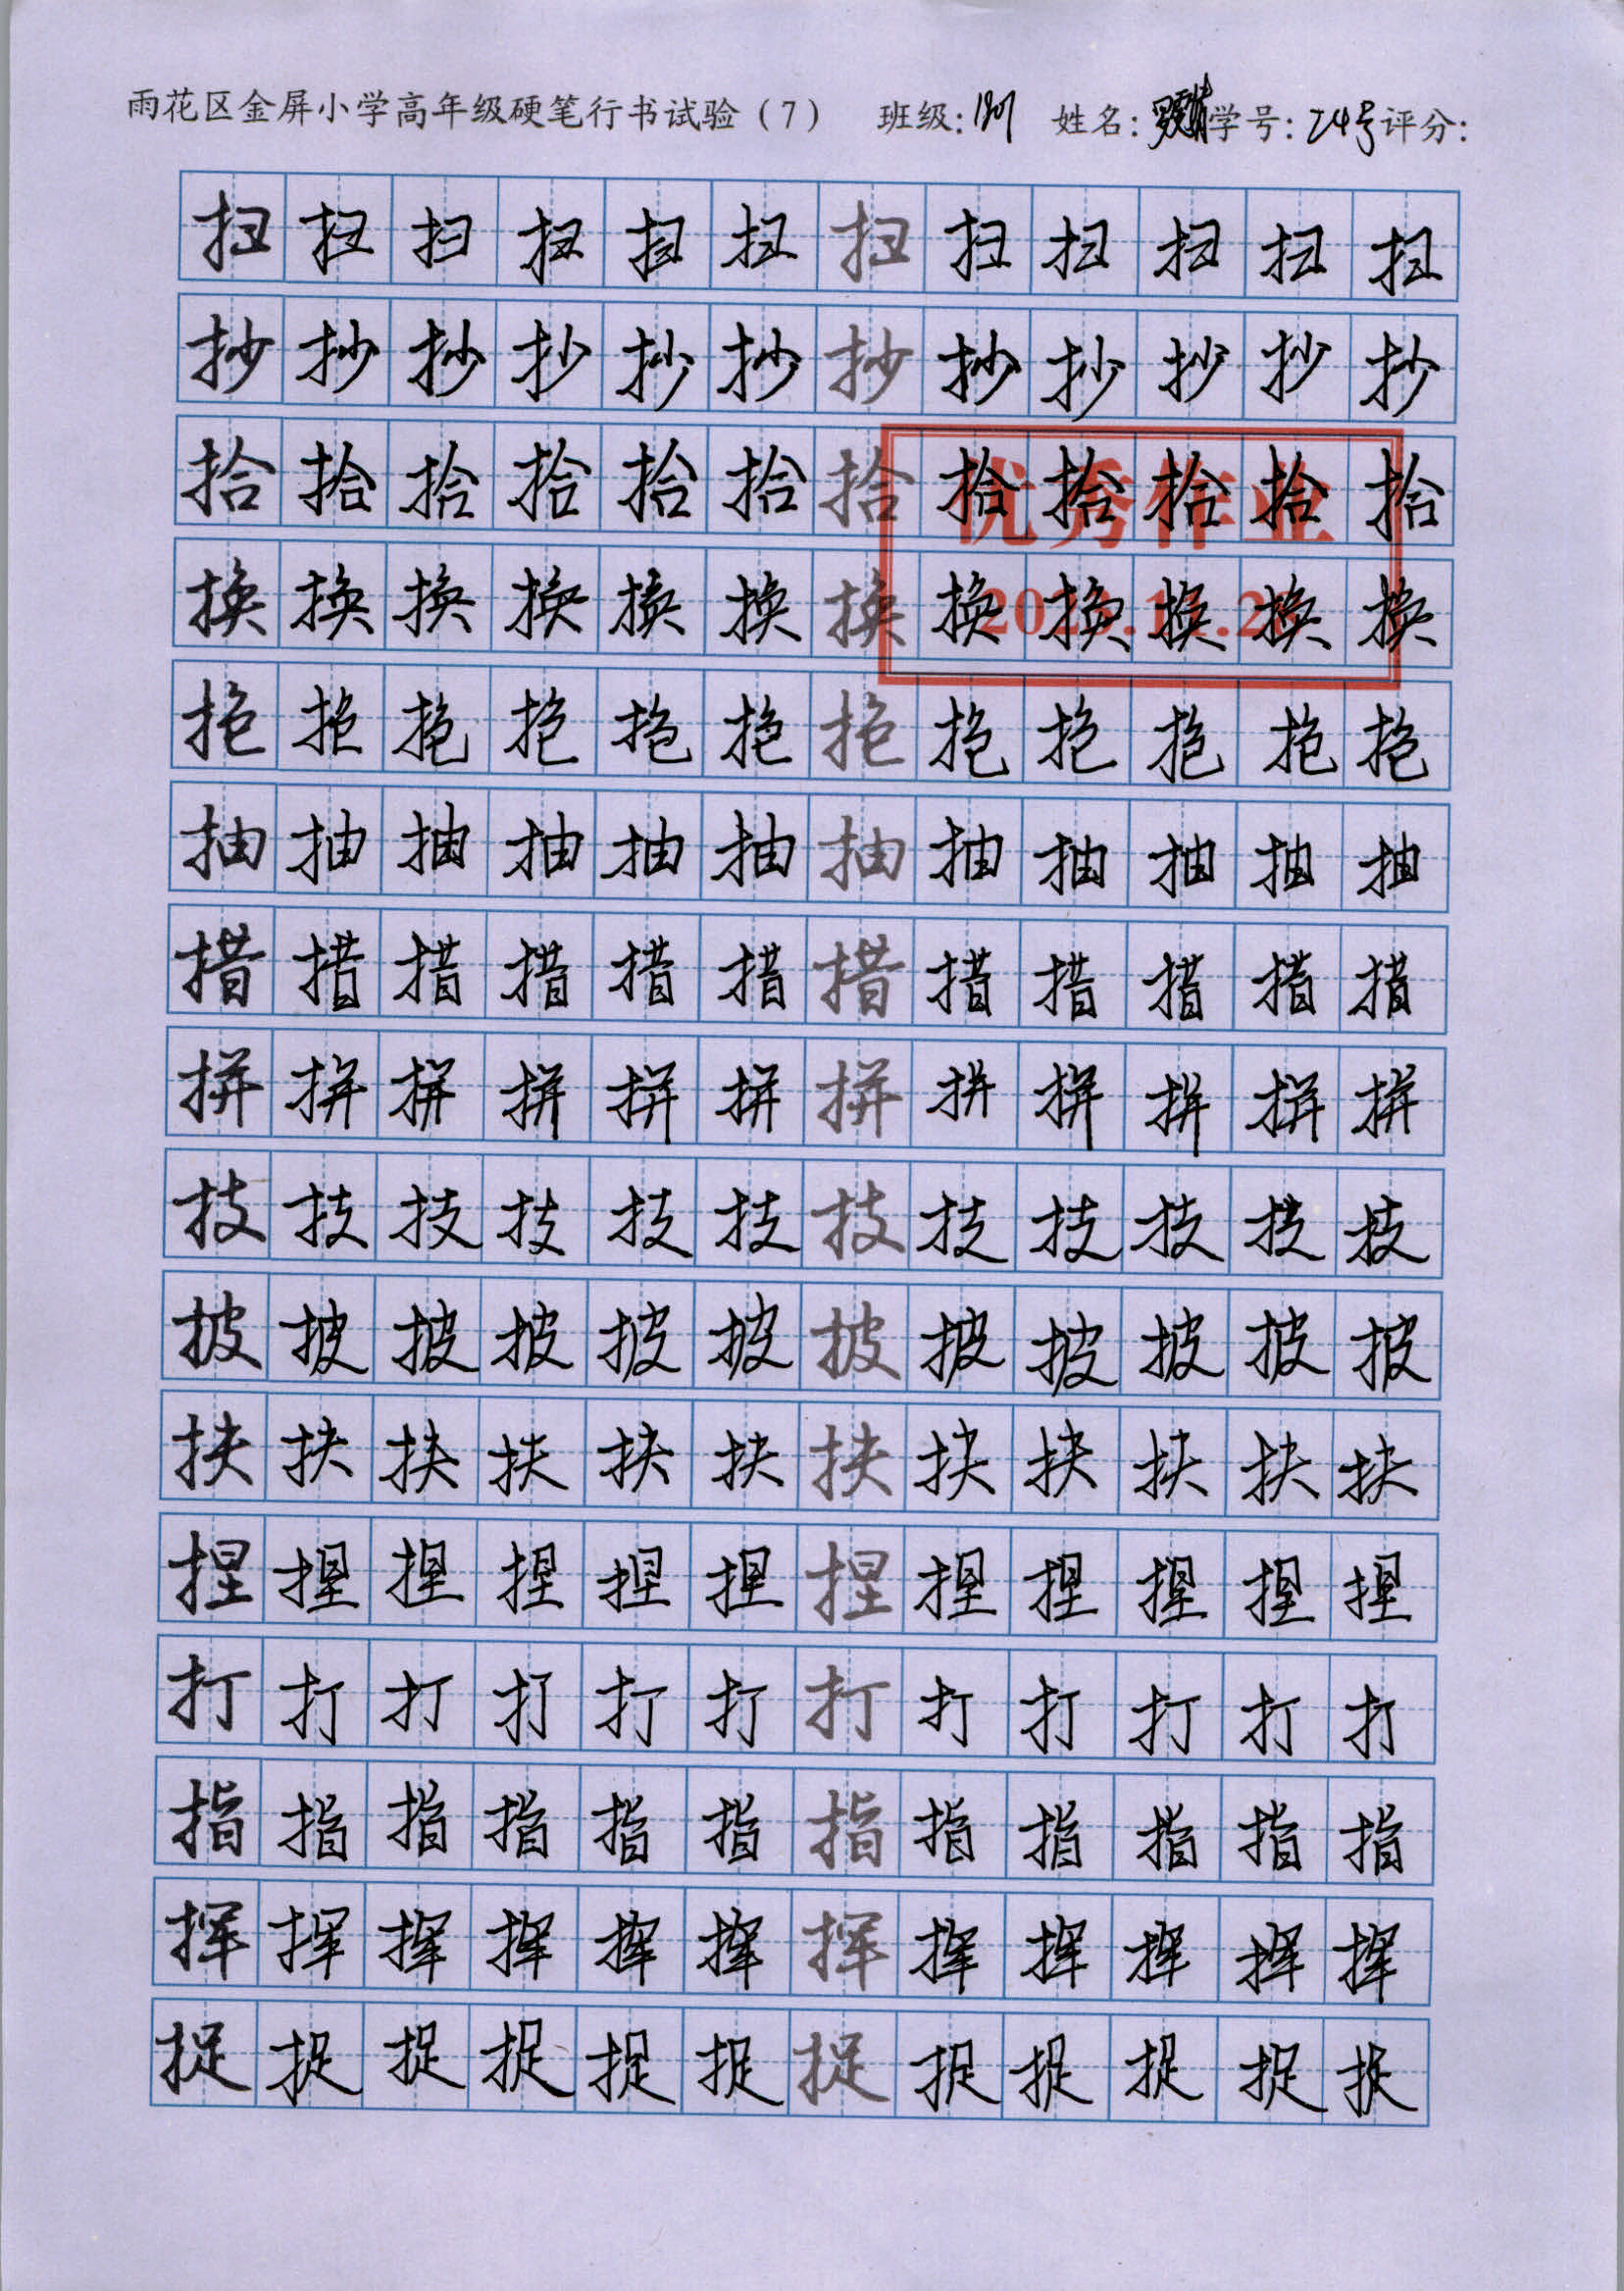 雨花区金屏小学高年级硬笔行书试验（7） 班级：1801 姓名： 学号：24号 评分：
扫扫扫扫扫扫扫扫扫扫扫扫
抄抄抄抄抄抄抄抄抄抄抄抄
拾拾拾拾拾拾拾拾拾拾拾拾
优秀作业
换换换换换换换换换换换换
抱抱抱抱抱抱抱抱抱抱抱抱
抽抽抽抽抽抽抽抽抽抽抽抽
措措措措措措措措措措措措
拼拼拼拼拼拼拼拼拼拼拼拼
技技技技技技技技技技技技
披披披披披披披披披披披披
扶扶扶扶扶扶扶扶扶扶扶扶
捏捏捏捏捏捏捏捏捏捏捏捏
打打打打打打打打打打打打
指指指指指指指指指指指指
挥挥挥挥挥挥挥挥挥挥挥挥
捉捉捉捉捉捉捉捉捉捉捉捉